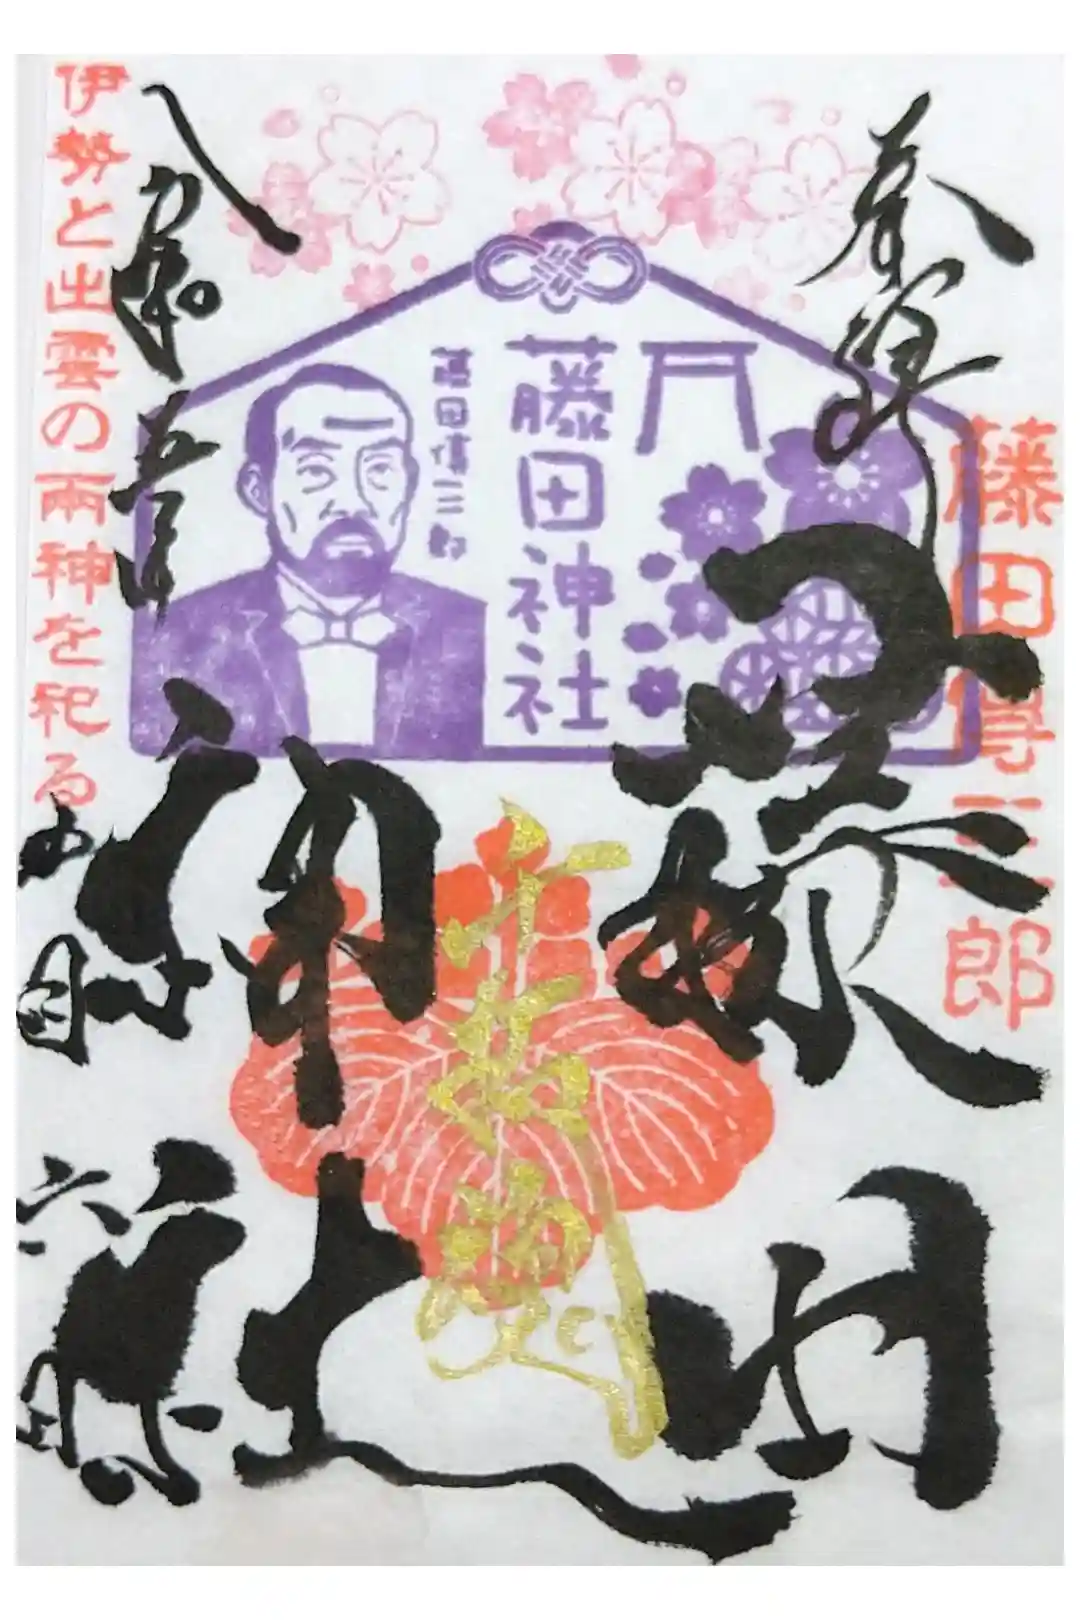 藤田傳三郎
奉拝
藤田
神社
藤田神社
藤田傳三郎
令和五年
四月
六日
伊勢と出雲の両神を祀る